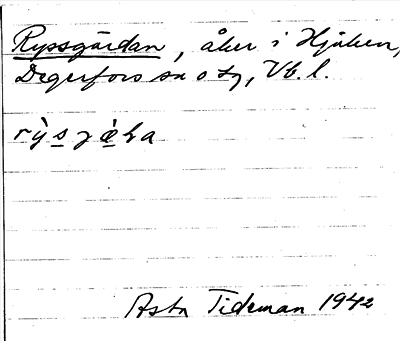 Ryssgärdan, åker i Hjuken,
Degerfors sn o tg, Vb. l.
rỳsjæ̀ɫa
Asta Tideman 1942